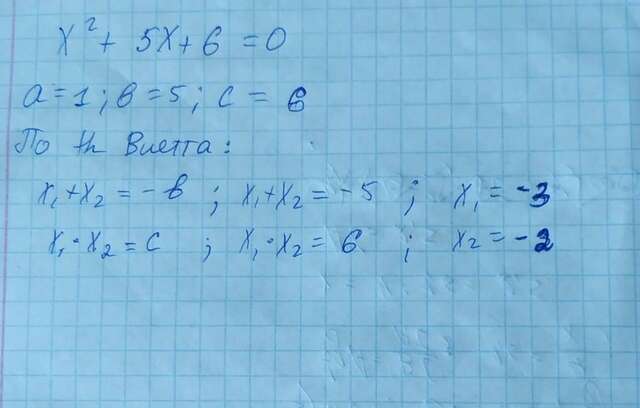 x² + 5x + 6 = 0
a = 1 ; b = 5 ; c = 6
По th Виетта :
x₁ + x₂ = -b ; x₁ + x₂ = -5 ; x₁ = -3
x₁ · x₂ = c ; x₁ · x₂ = 6 ; x₂ = -2